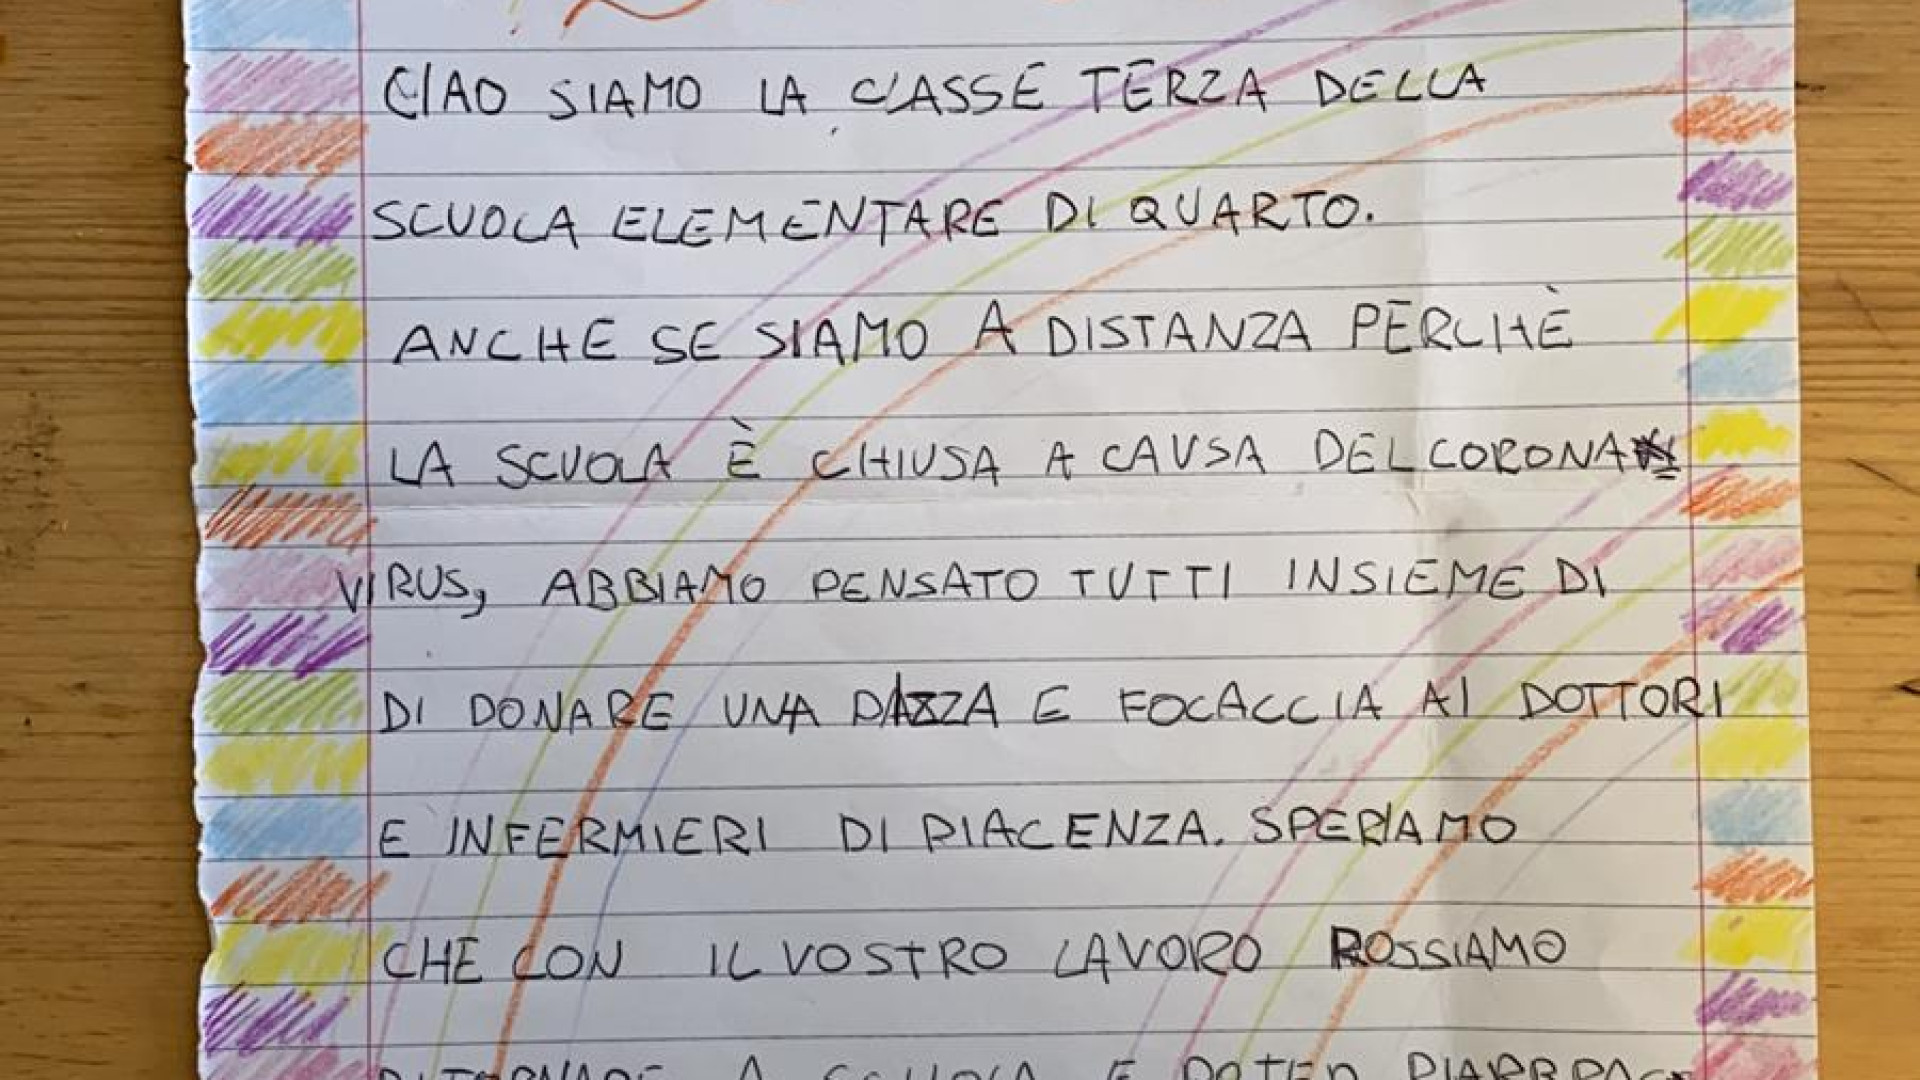 CIAO SIAMO LA CLASSE TERZA DELLA
SCUOLA ELEMENTARE DI QUARTO.
ANCHE SE SIAMO A DISTANZA PERCHÈ
LA SCUOLA È CHIUSA A CAUSA DEL CORONA
VIRUS, ABBIAMO PENSATO TUTTI INSIEME DI
DI DONARE UNA E FOCACCIA AI DOTTORI
E INFERMIERI DI PIACENZA. SPERIAMO
CHE CON IL VOSTRO LAVORO POSSIAMO
RITORNARE A SCUOLA E POTER RIABBRAC